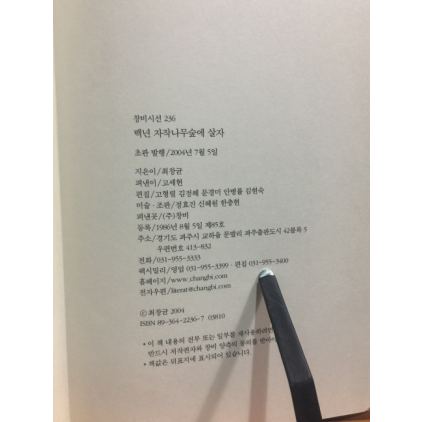 창비시선 236
백년 자작나무숲에 살자
초판 발행/2004년 7월 5일
지은이/최창균
펴낸이/고세현
편집/고형렬 김정혜 문경미 안병률 김현숙
미술·조판/정효진 신혜원 한충현
펴낸곳/(주)창비
등록/1986년 8월 5일 제85호
주소/경기도 파주시 교하읍 문발리 파주출판도시 42블록 5
우편번호 413-832
전화/031-955-3333
팩시밀리/영업 031-955-3399·편집 031-955-3400
홈페이지/www.changbi.com
전자우편/literat@changbi.com
ⓒ 최창균 2004
ISBN 89-364-2236-7 03810
* 이 책 내용의 전부 또는 일부를 재사용하려면
반드시 저작권자와 창비 양측의 동의를 받아야
* 책값은 뒤표지에 표시되어 있습니다.